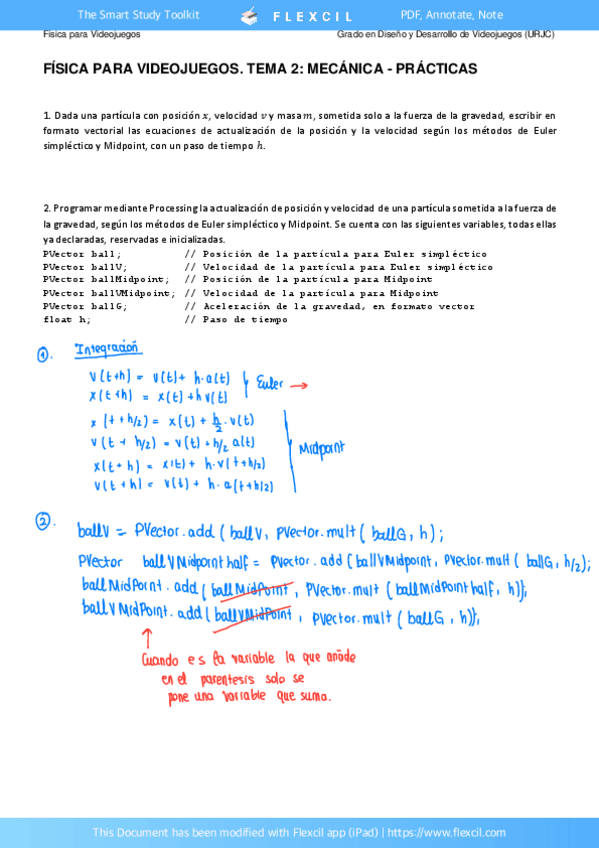 The Smart Study Toolkit
FLEXCIL
PDF, Annotate, Note
Física para Videojuegos
Grado en Diseño y Desarrollo de Videojuegos (URJC)
FÍSICA PARA VIDEOJUEGOS. TEMA 2: MECÁNICA - PRÁCTICAS
1. Dada una partícula con posición x, velocidad v y masa m, sometida solo a la fuerza de la gravedad, escribir en
formato vectorial las ecuaciones de actualización de la posición y la velocidad según los métodos de Euler
simpléctico y Midpoint, con un paso de tiempo h.
2. Programar mediante Processing la actualización de posición y velocidad de una partícula sometida a la fuerza de
la gravedad, según los métodos de Euler simpléctico y Midpoint. Se cuenta con las siguientes variables, todas ellas
ya declaradas, reservadas e inicializadas.
PVector ball; // Posición de la partícula para Euler simpléctico
PVector ballV; // Velocidad de la partícula para Euler simpléctico
PVector ballMidpoint; // Posición de la partícula para Midpoint
PVector ballVMidpoint; // Velocidad de la partícula para Midpoint
PVector ballG; // Aceleración de la gravedad, en formato vector
float h; // Paso de tiempo
1. Integración
v(t+h) = v(t) + h·a(t)
x(t+h) = x(t) + h v(t)
Euler →
x(t+h/2) = x(t) + h/2 · v(t)
v(t+h/2) = v(t) + h/2 a(t)
x(t+h) = x(t) + h·v(t+h/2)
v(t+h) = v(t) + h·a(t+h/2)
Midpoint
2. ballV = PVector.add (ballV, PVector.mult (ballG, h);
PVector ballVMidpointhalf = PVector.add (ballVMidpoint, PVector.mult (ballG, h/2);
ballMidPoint.add (ballMidPoint, PVector.mult (ballMidPointhalf, h));
ballVMidPoint.add (ballVMidPoint, PVector.mult (ballG, h));
Cuando es la variable la que añade
en el parentesis solo se
pone una variable que suma.
This Document has been modified with Flexcil app (iPad) | https://www.flexcil.com